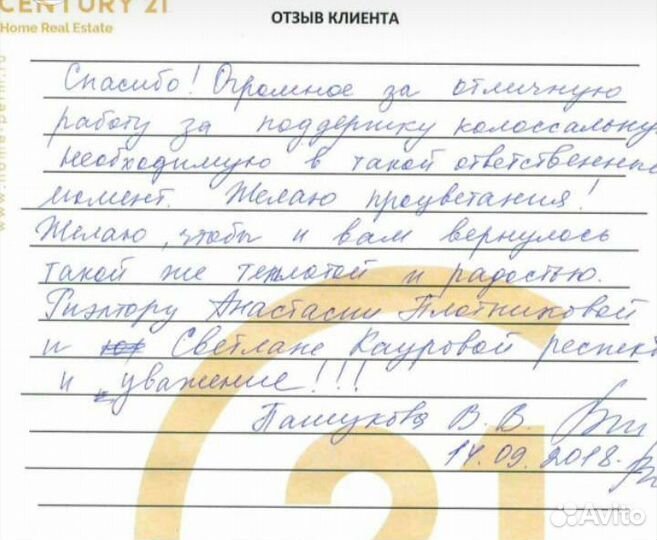 CENTURY 21
Home Real Estate
ОТЗЫВ КЛИЕНТА
www.home-perm.ru
Спасибо! Огромное за отличную
работу за поддержку колоссальную
необходимую в такой ответственный
момент. Желаю процветания!
Желаю, чтобы и вам вернулось
такой же теплотой и радостью.
Риэлтору Анастасии Плотниковой
и Светлане Кауровой респект
и уважение!!!
Пашукова В. В.
14.09.2018.
21
Avito